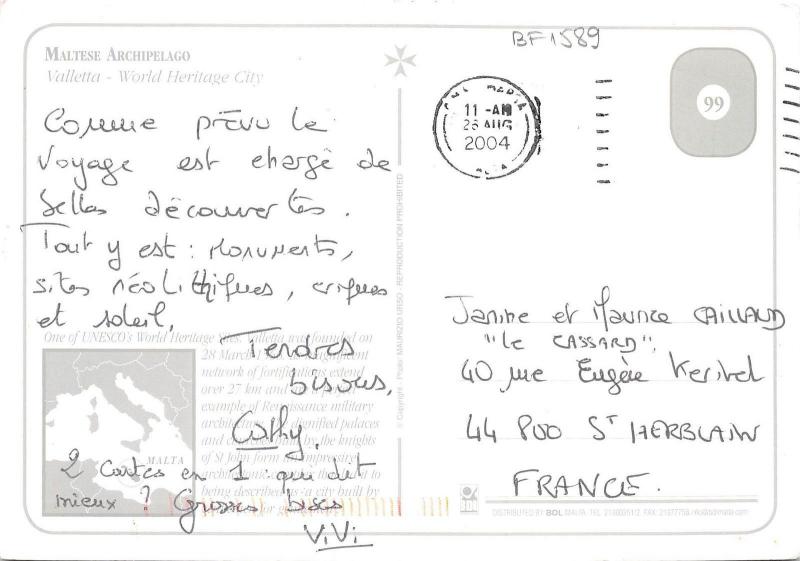 BF1589
MALTESE ARCHIPELAGO
Valletta - World Heritage City
Comme prévu le
voyage est chargé de
belles découvertes.
Tout y est : monuments,
sites néolithiques, criques
et soleil.
Tendres
bisous,
Cathy.
2 cartes en 1 : qui dit
mieux ? Grosses bises
ViVi
One of UNESCO's World Heritage Sites. Valletta was founded on
28 March
network of fortifications extend
over 27 km and
example of Renaissance military
dignified palaces
and by the knights
of St John form
to
being described as a city built by
MALTA
© Copyright - Photo: MAURIZIO URSO - REPRODUCTION PROHIBITED
11 -AM
26 AUG
2004
99
Janine et Maurice CAILLAUD
"Le CASSARD",
40 rue Eugène Kerivel
44 800 St HERBLAIN
FRANCE.
DISTRIBUTED BY BOL MALTA.